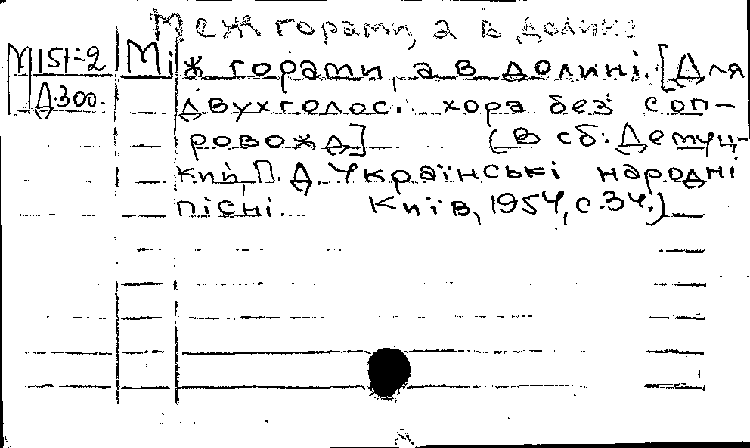 Меж горами, а в долине
М151-2
Д.300.
Між горами, а в долині. [Для
двухголос. хора без соп-
ровожд] (В сб: Демуц-
кий, П. Д. Українські народні
пісні. Київ, 1954, с.34.)